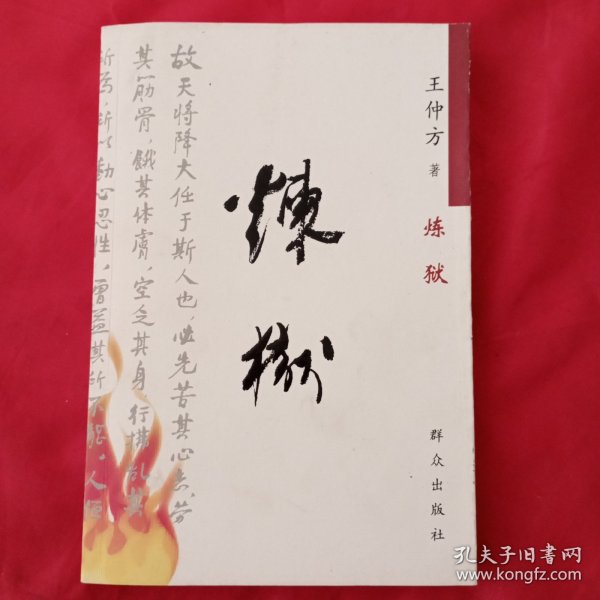 王仲方 著
炼狱
群众出版社
煉獄
故天将降大任于斯人也，必先苦其心志，劳
其筋骨，餓其体膚，空乏其身行拂乱其
所为，所以動心忍性，曾益其所不能。人恒
孔夫子旧书网
www.kongfz.com